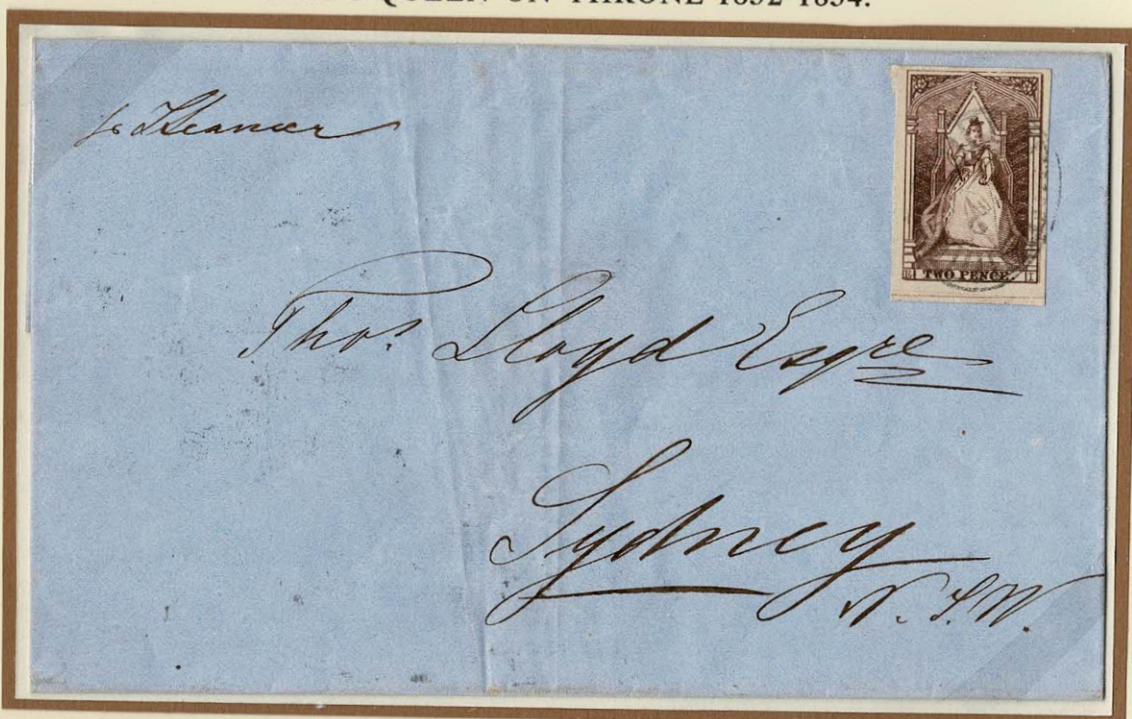 QUEEN ON THRONE 1852-1854.
pr Steamer
TWO PENCE.
Thos. Lloyd Esqre
Sydney
N. S. W.